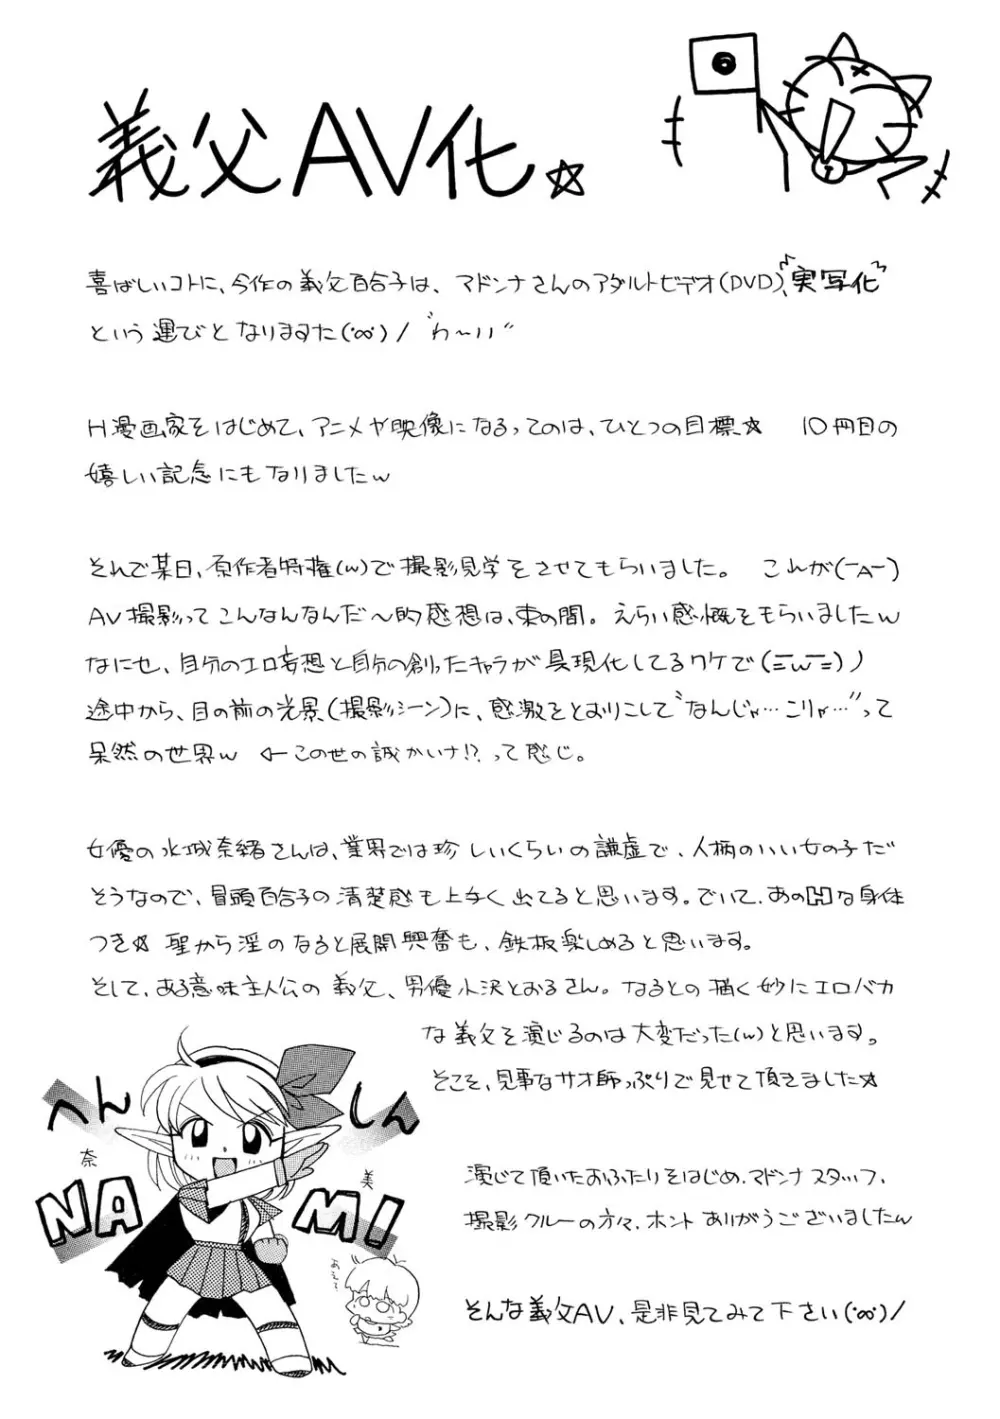 義父AV化☆
喜ばしいコトに、今作の義父百合子は、マドンナさんのアダルトビデオ(DVD)、実写化
という運びとなりますた(°∞°)/ "わ～いい"
H漫画家をはじめて、アニメや映像になるってのは、ひとつの目標☆ 10冊目の
嬉しい記念にもなりましたw
それで某日、原作者特権(w)で撮影見学をさせてもらいました。 これが(ーAー)
AV撮影ってこんなんなんだ～的感想は、束の間。えらい感慨をもらいましたw
なにせ、自分のエロ妄想と自分の創ったキャラが具現化してるワケで(ΞwΞ)ノ
途中から、目の前の光景(撮影シーン)に、感激をとおりこして"なんじゃ…こりゃ…"って
呆然の世界w ←この世の誠かいナ!?って感じ。
女優の水城奈緒さんは、業界では珍しいくらいの謙虚で、人柄のいい女の子だ
そうなので、冒頭百合子の清楚感も上手く出てると思います。でいて、あのHな身体
つき☆ 聖から淫のなると展開興奮も、鉄板楽しめると思います。
そして、ある意味主人公の義父、男優小沢とおるさん。なるとの描く妙にエロバカ
な義父を演じるのは大変だった(w)と思います。
そこそ、見事なサオ師っぷりで見せて頂きました☆
へん しん
奈 美
NA MI
あえて
演じて頂いたおふたりをはじめ、マドンナスタッフ、
撮影クルーの方々、ホントありがうございましたw
そんな義父AV、是非見てみて下さい(°∞°)/